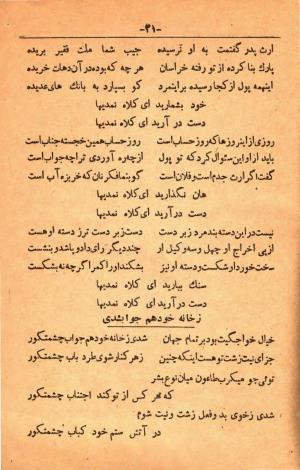 -۳۱-
ارث پدر گفتمت به او نرسیده جیب شما ملت فقیر بریده
پارك بنا کرده از تو رفته خراسان هر چه که بوده در آن دهات خریده
اینهمه پول از کجا رسیده براینمرد گو بسپارد به بانك های عدیده
خود بشمارید ای کلاه نمدیها
دست در آرید ای کلاه نمدیها
روزی از اینروزها که روز حساب است روز حساب همین خجسته جناب است
باید از او این سئوال کرد که تو پول از چه ره آوردی ترا چه جواب است
گفت اگر ارث جدم است و فلان است گو بنما فکر نان که خربزه آب است
هان نگذارید ای کلاه نمدیها
دست در آرید ای کلاه نمدیها
نیست در این دسته بندمرد زبر دست دست زبر دست ترز دسته او هست
از پی اخراج او چهل وسه وکیل او چند دیگر رای داد و پاشد و بنشست
سخت خورد او شکست دسته او نیز بشکند او را کمر اگر چه نه بشکست
سنك بیارید ای کلاه نمدیها
دست در آرید ای کلاه نمدیها
ز خانه خودهم جوابشدی
خیال خواجگیت بود بر تمام جهان شدی ز خانه خودهم جواب چشمتکور
جزای نیت زشت تو هست اینکه چنین ز هر کنار شوی طرد باب چشمتکور
توئی جو میکرب طاعون میان نوع بشر
که هر کس از تو کند اجتناب چشمتکور
شدی زخوی بد و فعل زشت ونیت شوم
در آتش ستم خود کباب چشمتکور